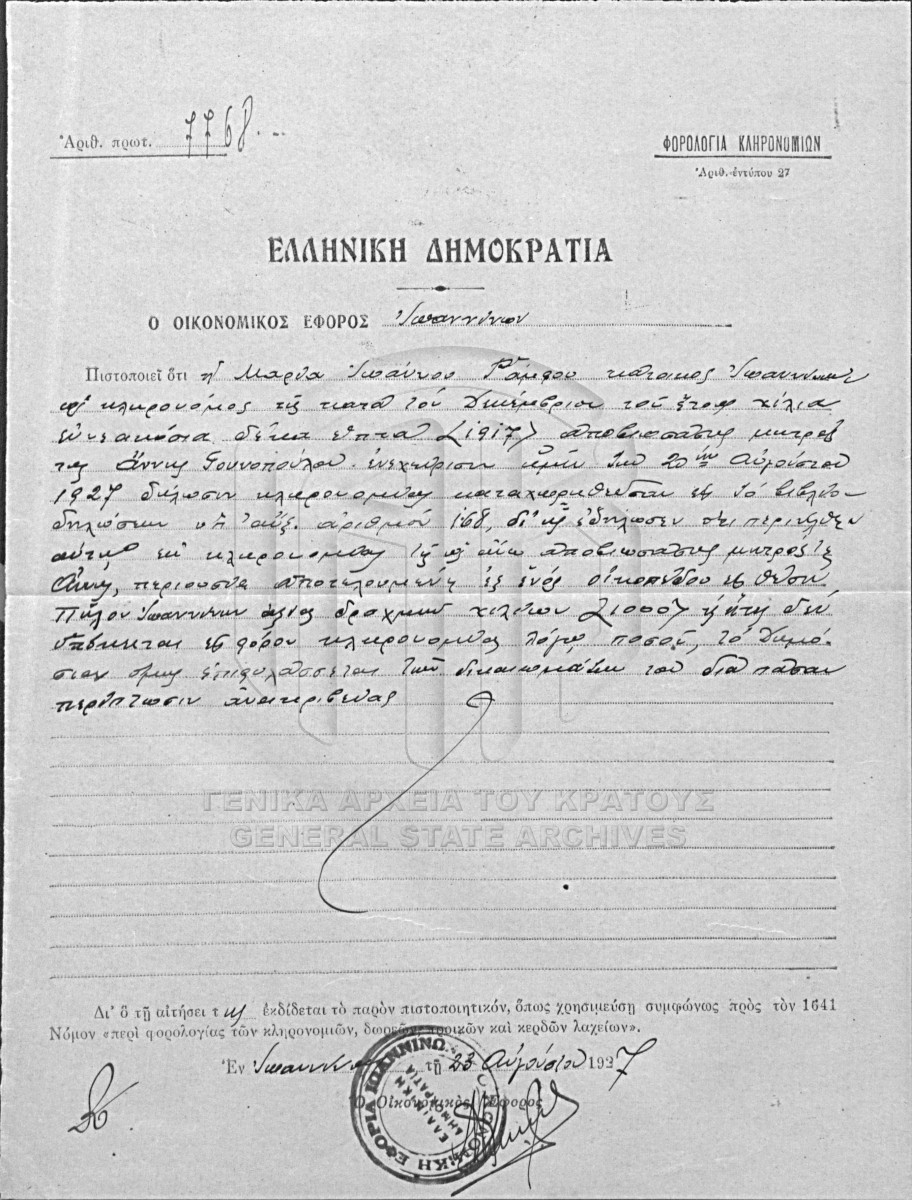 Ἀριθ. πρωτ. 7768.
ΦΟΡΟΛΟΓΙΑ ΚΛΗΡΟΝΟΜΙΩΝ
Ἀριθ. ἐντύπου 27
ΕΛΛΗΝΙΚΗ ΔΗΜΟΚΡΑΤΙΑ
Ο ΟΙΚΟΝΟΜΙΚΟΣ ΕΦΟΡΟΣ Ἰωαννίνων
Πιστοποιεῖ ὅτι ἡ Μαρία Ἰωάννου Ράμφου κάτοικος Ἰωαννίνων
κληρονόμος τῆς κατὰ τὸν Δεκέμβριον τοῦ ἔτους χίλια
ἐννεακόσια δέκα ἑπτὰ (1917) ἀποβιωσάσης μητρός
της Ἄννης Γουνοπούλου ἐνεχείρισεν ἡμῖν τὴν 20ὴν Αὐγούστου
1927 δήλωσιν κληρονομίας καταχωρηθεῖσαν εἰς τὸ βιβλίον
δηλώσεων ὑπ' αὔξ. ἀριθμόν 168, δι' ἧς ἐδήλωσεν ὅτι περιῆλθεν
αὐτῇ ἐκ κληρονομίας τῆς ὡς ἄνω ἀποβιωσάσης μητρός της
Ἄννης, περιουσία ἀποτελουμένη ἐξ ἑνός οἰκοπέδου εἰς θέσιν
Ἰωαννίνων ἀξίας δραχμῶν χιλίων (1000) ἥτις δέν
ὑπόκειται εἰς φόρον κληρονομίας λόγῳ ποσοῦ, τὸ Δημό-
σιον ὅμως ἐπιφυλάσσεται τῶν δικαιωμάτων του διὰ πᾶσαν
περίπτωσιν ἀνακριβείας
ΓΕΝΙΚΑ ΑΡΧΕΙΑ ΤΟΥ ΚΡΑΤΟΥΣ
GENERAL STATE ARCHIVES
Δι' ὃ τῇ αἰτήσει της ἐκδίδεται τὸ παρὸν πιστοποιητικόν, ὅπως χρησιμεύσῃ συμφώνως πρὸς τὸν 1641
Νόμον «περὶ φορολογίας τῶν κληρονομιῶν, δωρεῶν, προικῶν καὶ κερδῶν λαχείων».
Ἐν Ἰωαννίνοις τῇ 23 Αὐγούστου 1927
Ὁ Οἰκονομικὸς Ἔφορος
ΕΦΟΡΙΑ ΙΩΑΝΝΙΝΩΝ
ΕΛΛΗΝΙΚΗ
ΔΗΜΟΚΡΑΤΙΑ